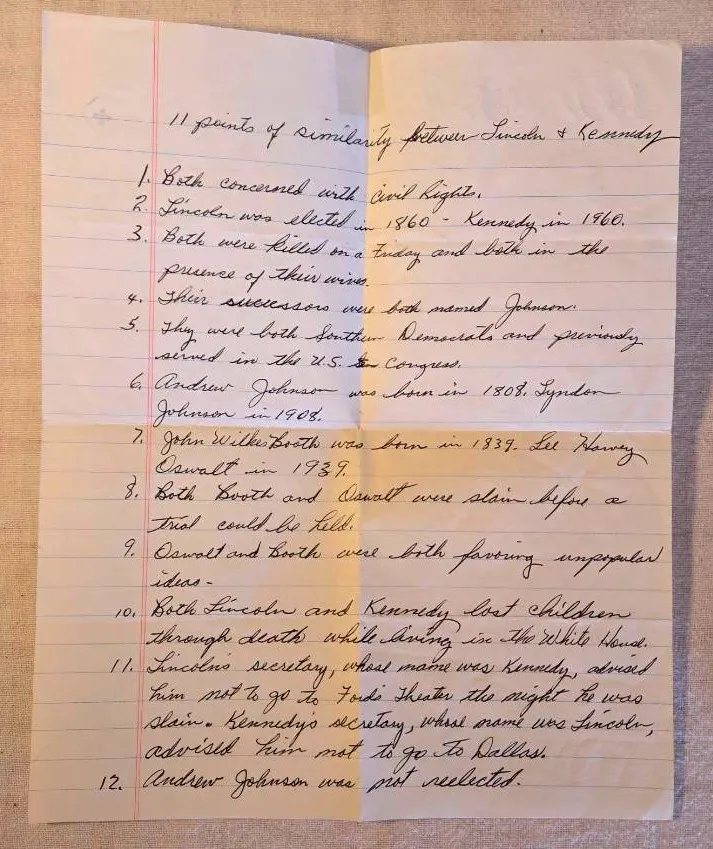 11 points of similarity between Lincoln & Kennedy
1. Both concerned with Civil Rights.
2. Lincoln was elected in 1860 - Kennedy in 1960.
3. Both were killed on a Friday and both in the
presence of their wives.
4. Their successors were both named Johnson.
5. They were both Southern Democrats and previously
served in the U.S. Congress.
6. Andrew Johnson was born in 1808. Lyndon
Johnson in 1908.
7. John Wilkes Booth was born in 1839. Lee Harvey
Oswalt in 1939.
8. Both Booth and Oswalt were slain before a
trial could be held.
9. Oswalt and Booth were both favoring unpopular
ideas -
10. Both Lincoln and Kennedy lost children
through death while living in the White House.
11. Lincoln's secretary, whose name was Kennedy, advised
him not to go to Fords Theater the night he was
slain. Kennedy's secretary, whose name was Lincoln,
advised him not to go to Dallas.
12. Andrew Johnson was not reelected.